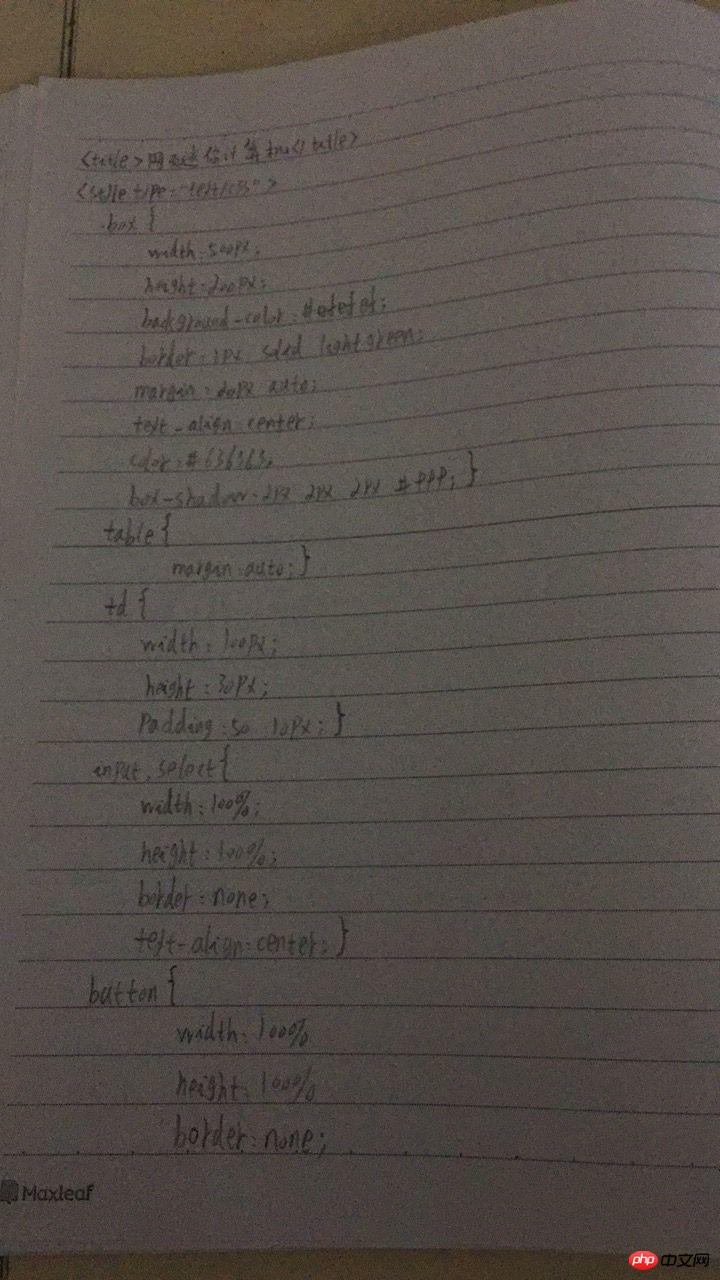 <title>网页计算机</title>
<style type="text/css">
.box {
width:500px;
height:200px;
background-color:#efefef;
border:1px solid lightgreen;
margin:20px auto;
text-align:center;
color:#636363;
box-shadow:2px 2px 2px #999;}
table{
margin:auto;}
td{
width:100px;
height:30px;
Padding:5o 10px;}
input,select{
width:100%;
height:100%;
border:none;
text-align:center;}
button{
width:100%
height:100%
border:none;
Maxleaf
php 中文网